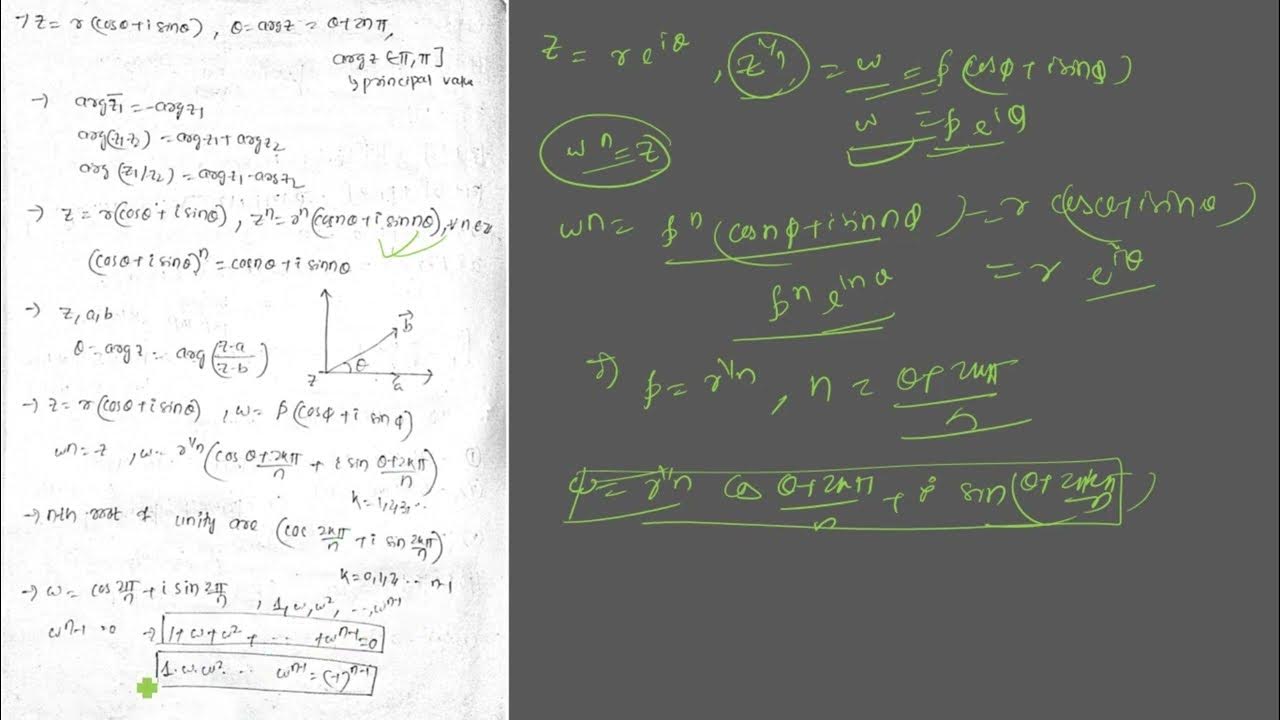 → z = r(cosθ + i sinθ), θ = arg z = θ+2nπ,
arg z (-π, π]
↳ principal value
→ arg z̄₁ = -arg z₁
arg(z₁z₂) = arg z₁ + arg z₂
arg(z₁/z₂) = arg z₁ - arg z₂
→ z = r(cosθ + i sinθ), zⁿ = rⁿ(cosnθ + i sinnθ), ∀ n∈z
(cosθ + i sinθ)ⁿ = cosnθ + i sinnθ
→ z, a, b
θ = arg z = arg(z-a/z-b)
b⃗
θ
z
a⃗
→ z = r(cosθ + i sinθ), ω = ρ(cosφ + i sinφ)
ωⁿ = z, ω = r^1/n (cos θ+2kπ/n + i sin θ+2kπ/n) ①
k = 1,2,3...
→ nth root of unity are (cos 2kπ/n + i sin 2kπ/n)
k = 0,1,2,... n-1
→ ω = cos 2π/n + i sin 2π/n, 1, ω, ω², ..., ωⁿ⁻¹
ωⁿ-1 = 0 → 1+ω+ω²+ ... +ωⁿ⁻¹=0
1·ω·ω²... ωⁿ⁻¹ = (-1)ⁿ⁻¹
z = r e^iθ, z^1/n = ω = ρ(cosφ + i sinφ)
ω = ρ e^iθ
ωⁿ = z
ωn = ρⁿ(cosnφ + i sinnφ) = r(cosθ + i sinθ)
= r e^iθ
ρⁿ e^inθ
ρ = r^1/n, n = θ+2kπ/n
φ = r^1/n cos θ+2kπ/n + i sin(θ+2kπ/n)